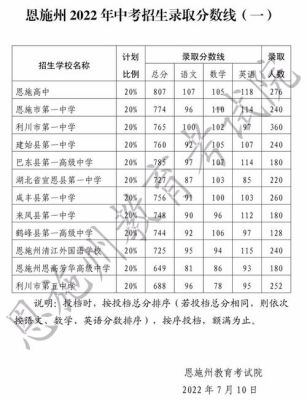 恩施州 2022 年中考招生录取分数线（一）
招生学校名称 计划比例 录取分数线 录取人数
总分 语文 数学 英语
恩施高中 20% 807 107 105 118 276
恩施市第一中学 20% 774 96 110 114 240
利川市第一中学 20% 765 100 102 97 360
建始县第一中学 20% 760 92 105 107 240
巴东县第一高级中学 20% 785 97 107 114 180
湖北省宣恩县第一中学 20% 727 87 103 85 220
咸丰县第一中学 20% 756 91 100 103 260
来凤县第一中学 20% 748 90 96 112 180
鹤峰县第一高级中学 20% 744 92 106 97 128
恩施州清江外国语学校 20% 725 95 94 115 240
恩施州恩高劳华高级中学 20% 649 81 86 93 180
利川市第五中学 20% 688 96 78 95 252
说明：投档时，按投档总分排序（若投档总分相同，则依次
按语文，数学，英语分数排序），按序投档，额满为止。
恩施州教育考试院
2022 年 7 月 10 日
恩施州教育考试院